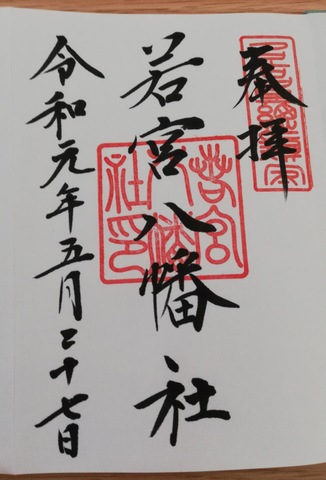 奉拝
若宮八幡社
令和元年五月二十七日
若宮八幡社印